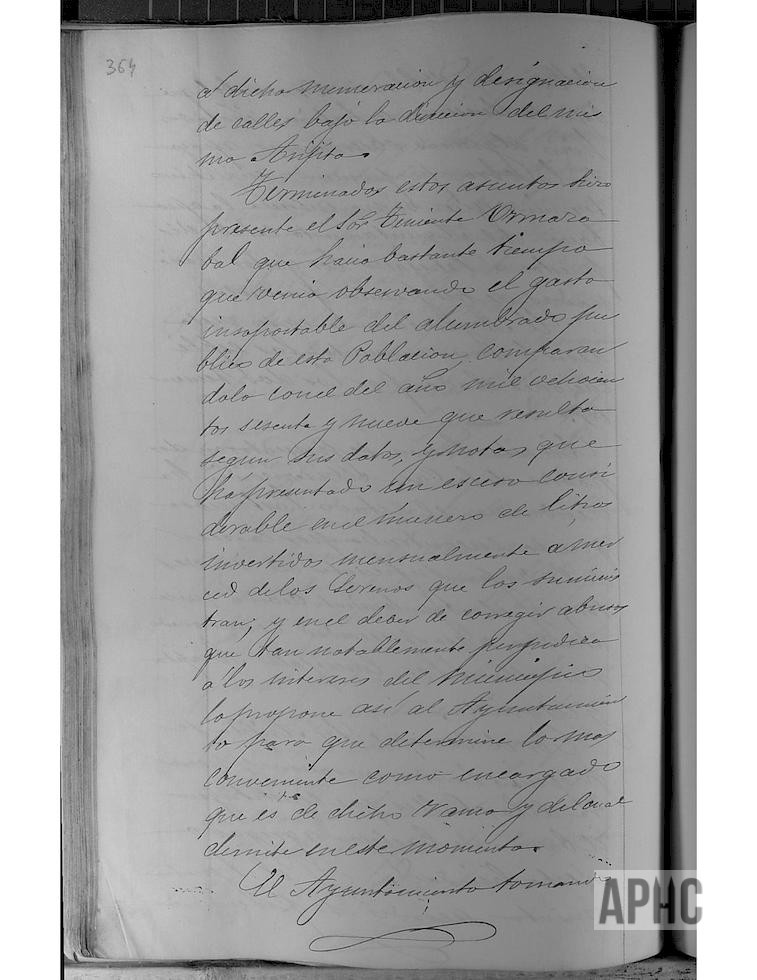 364
a dicha numeracion y designacion
de calles bajo la direccion del mis
mo
Terminados estos asuntos hizo
presente el Sor Teniente Ormaza
bal que hacia bastante tiempo
que venia observando el gasto
insoportable del alumbrado pu
blico de esta Poblacion, comparan
dolo con el del año mil ochocien
tos sesenta y nueve que resulta
segun sus datos, y notas que
há presentado un esceso consi
derable en el número de litros
invertidos mensualmente a mer
ced de los Serenos que los suminis
tran; y en el deber de corregir abusos
que tan notablemente perjudica
á los intereses del Municipio
lo propone así al Ayuntamien
to para que determine lo mas
conveniente como encargado
que és de dicho ramo y del cual
dimite en este momento.
El Ayuntamiento tomando
APHC